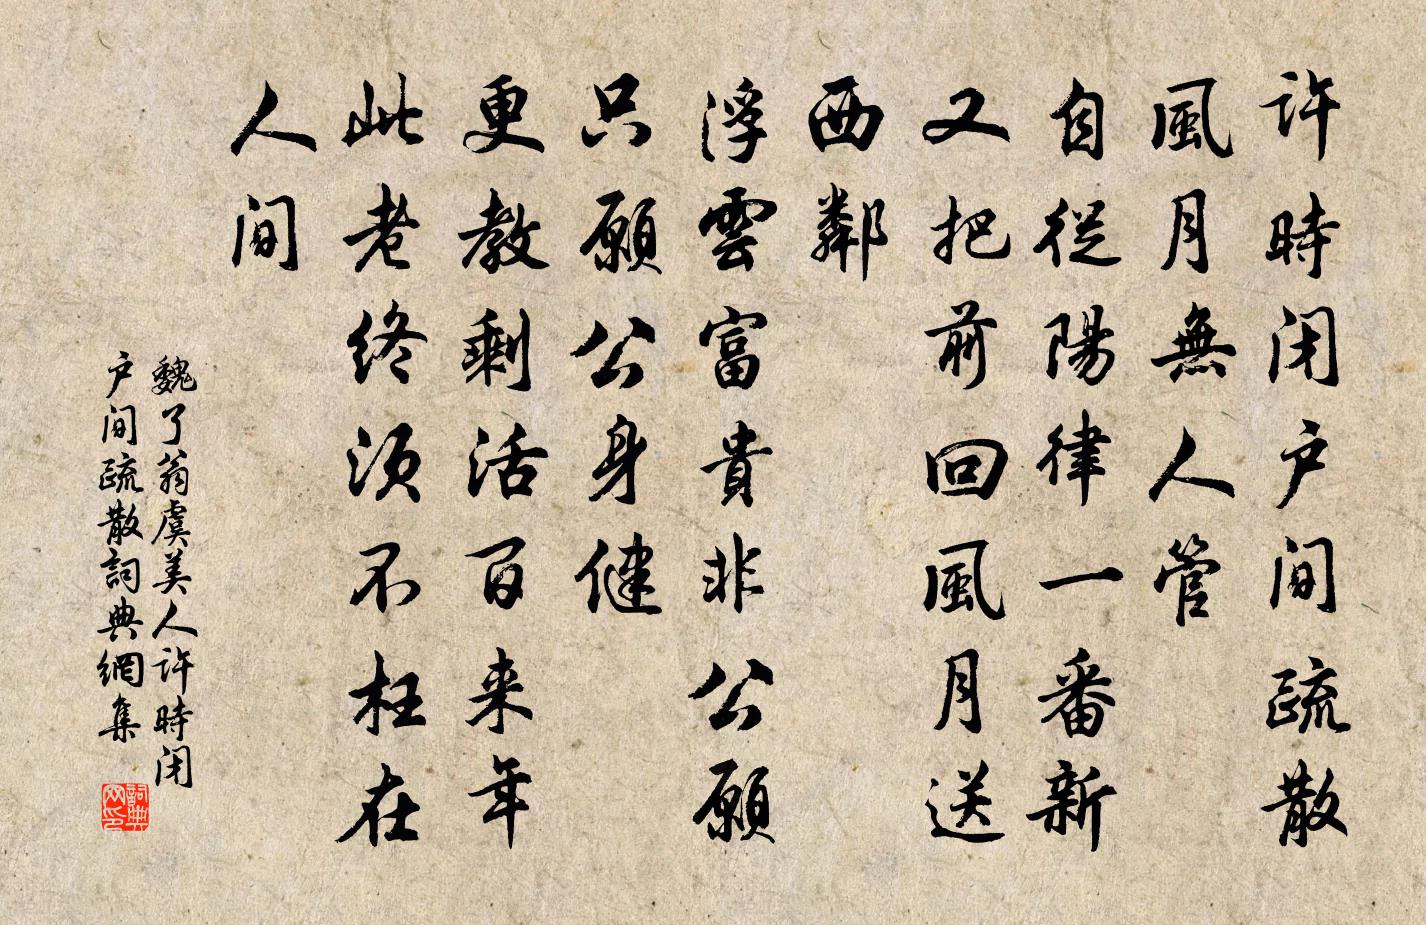 許時闭户间疏散
風月無人管
自從陽律一番新
又把前回風月送
西鄰
浮雲富貴非公願
只願公身健
更教剩活百来年
此老终须不枉在
人间
魏了翁虞美人許時闭
户间疏散詞典網集
詞典网印